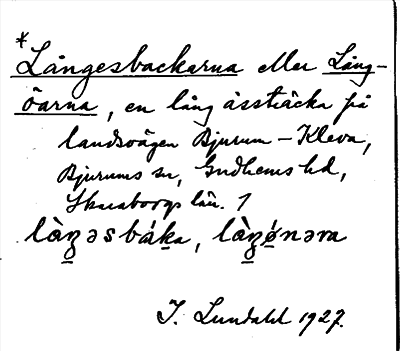 *
Långesbackarna eller Lång-
öarna, en lång åssträcka på
landsvägen Bjurum – Kleva,
Bjurums sn, Gudhems hd,
Skaraborgs län. 1
làŋəsbákа, làŋǿnəra
I. Lundahl 1927.